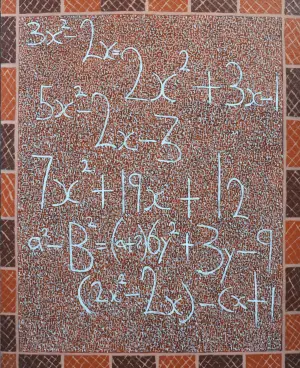 3x²-2x=
2x²+3x-1
5x²-2x-3
7x²+19x+12
a²-B²=(a+2)(6y²+3y-9
(2x²-2x)-(x+1